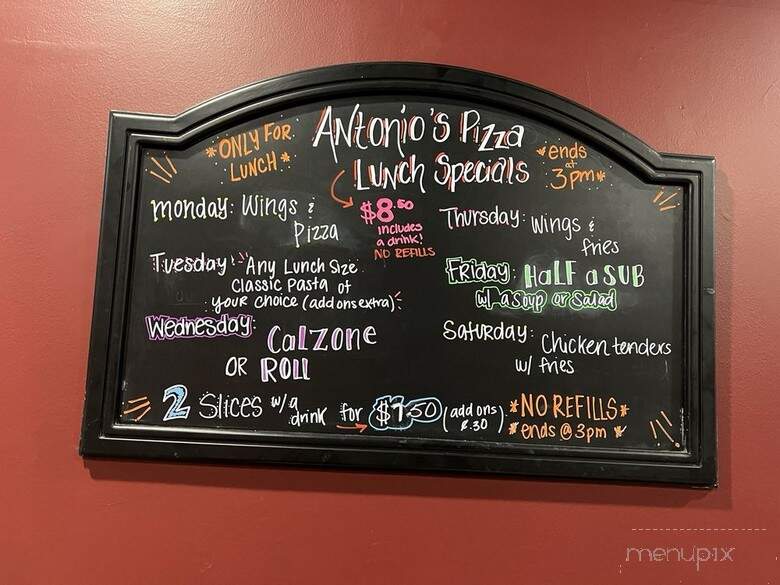 *ONLY FOR
LUNCH*
Antonio's Pizza
Lunch Specials
*ends
at
3pm*
$8.50
includes
a drink!
NO REFILLS
Monday: Wings &
Pizza
Tuesday: "Any Lunch Size
Classic Pasta of
your choice (add ons extra)
Wednesday:
Calzone
OR ROLL
Thursday: Wings &
fries
Friday: HALF a SUB
w/ a Soup or Salad
Saturday: Chicken tenders
w/ fries
2 Slices w/a
drink for $7.50 (add ons
.30)
*NO REFILLS*
*ends @ 3pm*
menupix